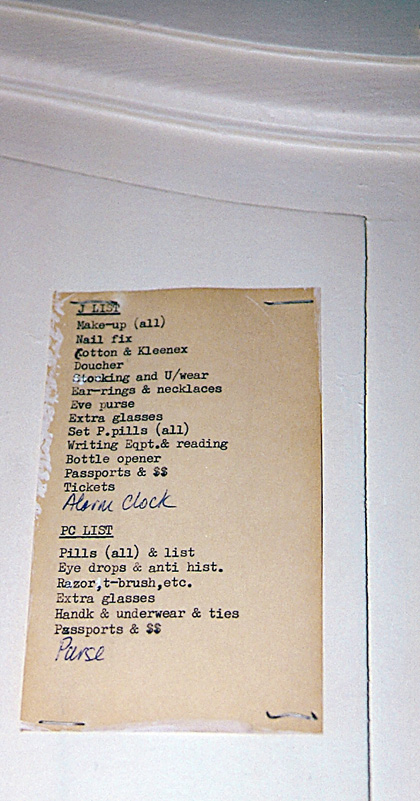 J LIST
Make-up (all)
Nail fix
Cotton & Kleenex
Doucher
Stocking and U/wear
Ear-rings & necklaces
Eve purse
Extra glasses
Set P.pills (all)
Writing Eqpt.& reading
Bottle opener
Passports & $$
Tickets
Alarm Clock
PC LIST
Pills (all) & list
Eye drops & anti hist.
Razor,t-brush,etc.
Extra glasses
Handk & underwear & ties
Passports & $$
Purse